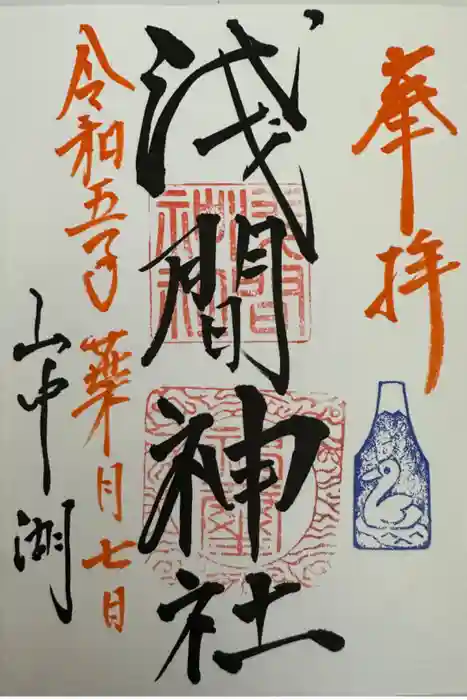 奉拝
浅間神社
令和五年葉月七日
山中湖